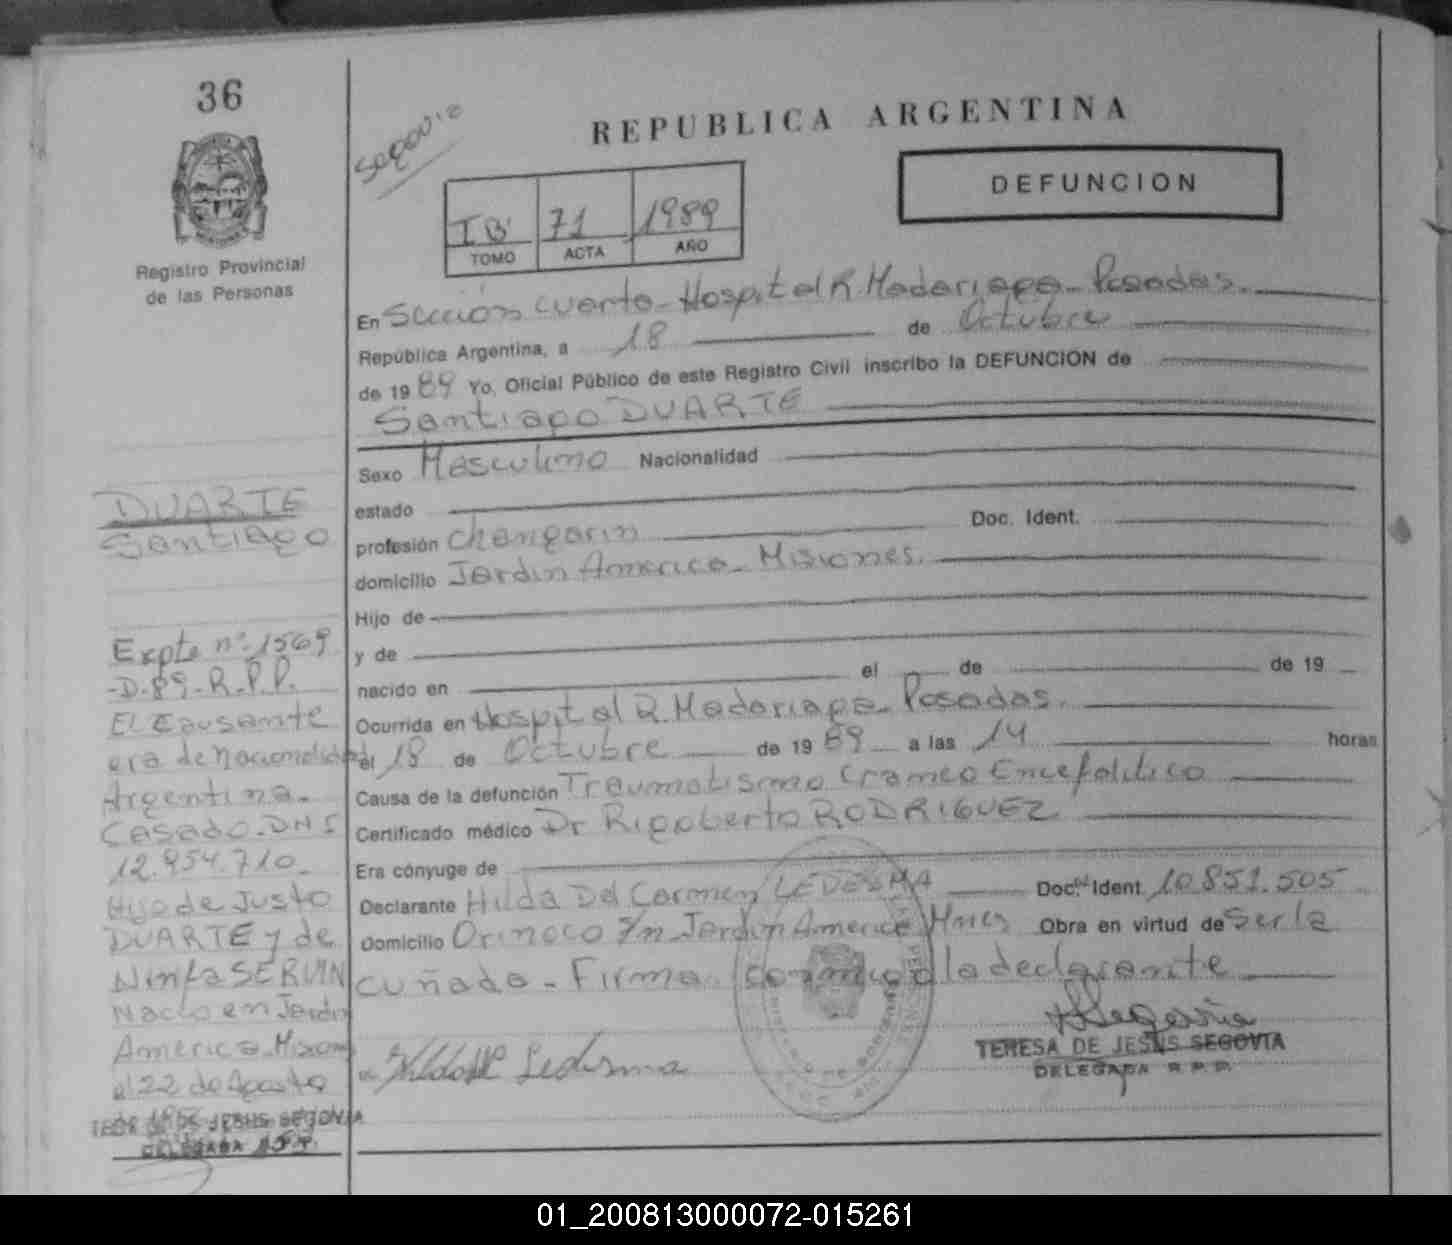 36
Registro Provincial
de las Personas
Segovia
REPUBLICA ARGENTINA
DEFUNCION
IB' 71 1989
TOMO ACTA AÑO
En Sección cuarta - Hospital R. Madariaga - Posadas.
República Argentina, a 18 de Octubre
de 1989 Yo, Oficial Público de este Registro Civil inscribo la DEFUNCION de
Santiago DUARTE
Sexo Masculino Nacionalidad
estado
profesión Changarin Doc. Ident.
domicilio Jardin America - Misiones.
Hijo de
y de
nacido en el de de 19
Ocurrida en Hospital R. Madariaga - Posadas.
el 18 de Octubre de 1989 a las 14 horas
Causa de la defunción Traumatismo Craneo Encefalitico
Certificado médico Dr Rigoberto RODRIGUEZ
Era cónyuge de
Declarante Hilda Del Carmen LEDESMA Doc. Ident. 10.851.505
Domicilio Orinoco s/n Jardin America Mnes Obra en virtud de Ser la
cuñada - Firma conmigo la declarante
Hilda Ledesma
TERESA DE JESUS SEGOVIA
DELEGADA R.P.P.
DUARTE
Santiago
Expte nº 1569
-D-89-R.P.P.
El Causante
era de nacionalidad
Argentina -
Casado - DNI
12.954.710 -
Hijo de Justo
DUARTE y de
Ninfa SERVIN
Nacio en Jardin
America - Mision
el 22 de Agosto
JESUS SEGOVIA
DELEGADA
01_200813000072-015261